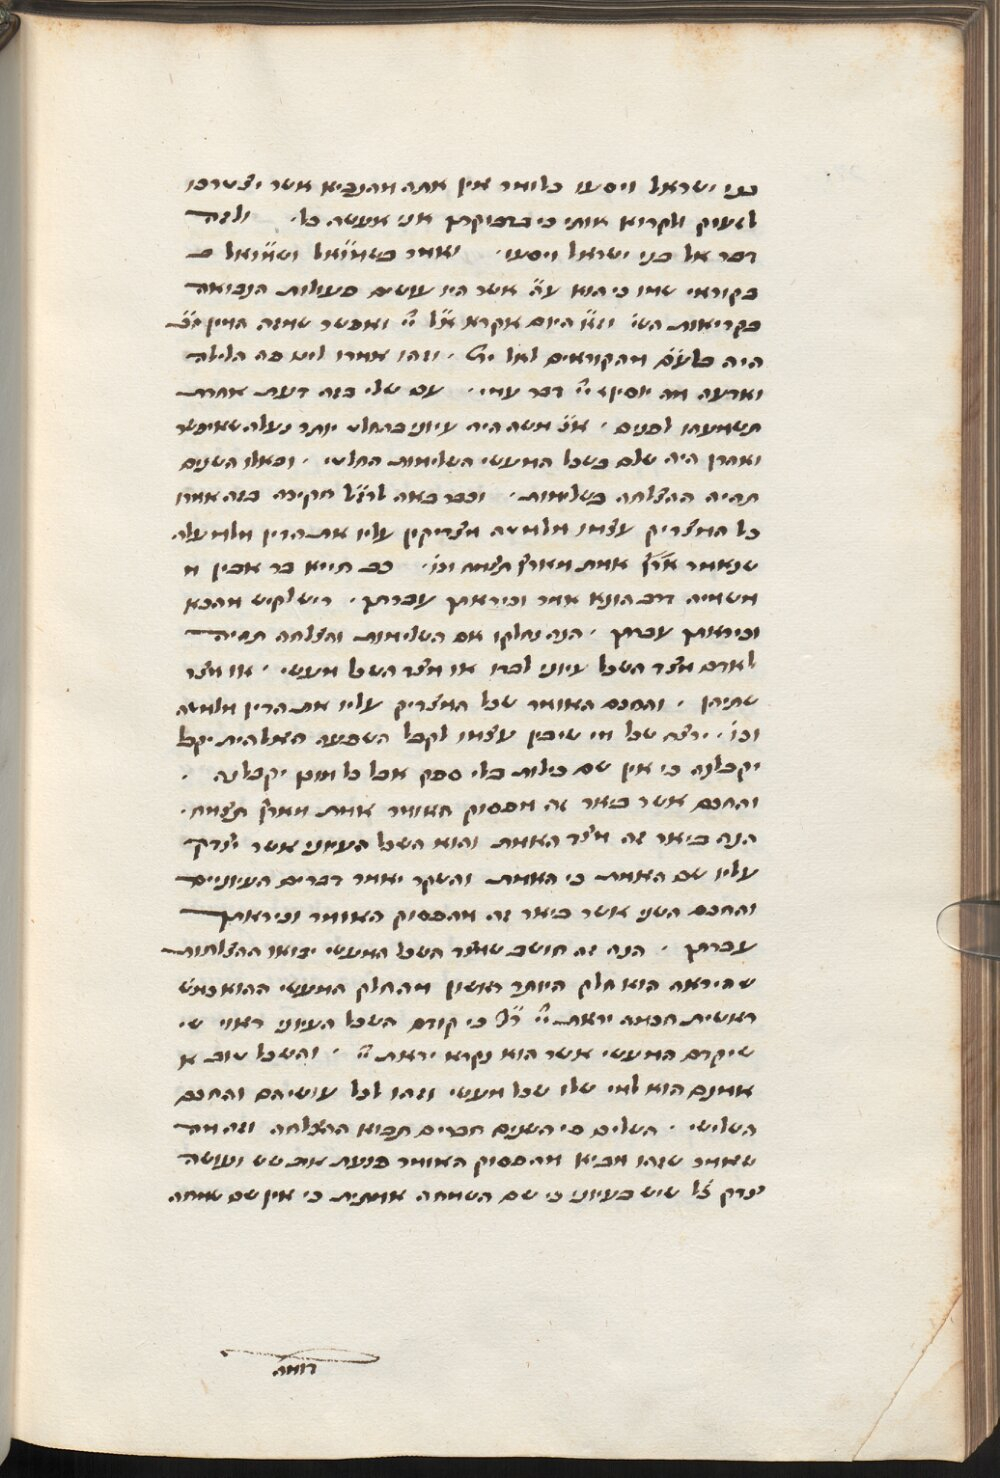 בני ישראל ויסעו כלומר אין אתה מהנביא אשר יצטרכו
לצעוק ולקרוא אותי כי בבוקרך אני אעשה כל ולזה
דבר אל בני ישראל ויסעו ואמר בשמואל ושמואל ב
בקוראי שמו כי הוא ע״ה אשר היו עושים פעולות הנבואה
בקריאות הש׳ וז״א היום אקרא אל י״י ואפשר שמזה המין
היה בלעם מהקוראים לאל ית׳ וזהו אמרו לינו פה הלילה
ואדעה מה יוסיף י״י דבר עמי עם שלי בזה דעת אחרת
תשמעהו לפנים משה היה עיוני בתכלית יותר נעלה שאיפשר
ואהרן היה שלם בשכל המעשי השלימות התכליי ובאלו השנים
תהיה ההצלחה בשלימות וכבר באה לרז״ל חקירה בזה אמרו
כל המצדיק עצמו מלמטה מצדיקין עליו את הדין מלמעלה
שנאמר אמת מארץ תצמח וכו׳ רב חייא בר אבין מ
משמיה דרב הונא אמר וכיראתך עברתך ריש לקיש מהכא
וכיראתך עברתך הנה נחלקו אם השלימות והצלחה תהיה
לאדם מצד השכל עיוני לבדו או מצד השכל מעשי או מצד
שתיהן והחכם האומר שכל המצדיק עליו את הדין מלמטה
וכו׳ ירצה שכל מי שיכין עצמו לקבל השפעה האלהית יקבל
יקבלנה כי אין שם כילות בלי ספק אבל כל מוכן יקבלנה
והחכם אשר ביאר זה מפסוק האומר אמת מארץ תצמח
הנה ביאר זה מצד האמת והוא השכל העיוני אשר יצדק
עליו שם האמת כי האמת והשקר יאמר דברים העיוניים
והחכם השני אשר ביאר זה מהפסוק האומר וכיראתך
עברתך הנה זה חושב שמצד השכל המעשי יבואו ההצלחות
שהיראה הוא חלק היותר ראשון מהחלק המעשי ההוא כמש
ראשית חכמה יראת י״י ר״ל כי קודם השכל העיוני ראוי שי
שיקדם המעשי אשר הוא נקרא יראת י״י והשכל טוב א
אמנם הוא למי שלו שכל מעשי וזהו לכל עושיהם והחכם
השלישי השלים כי השנים חברים תבוא ההצלחה וזה מה
שאמר שזהו מביא מהפסוק האומר פגעת את שש ועושה
צדק ר״ל שיש בעיוני כי שם השמחה אמתית כי אין שם שמחה
דומה